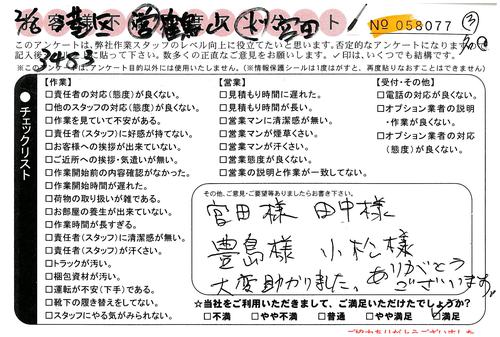 お客様下満足度アンケート
No 058077
このアンケートは、弊社作業スタッフのレベル向上に役立てたいと思います。否定的なアンケートになりますが、
記入後 に貼って下さい。数多くの正直なご意見をお願いします。✓印は、いくつでも結構です。
※このアンケートは、アンケート目的以外には使用いたしません。(※情報保護シールは1度はがすと、再度貼りなおすことはできません)
3453
チェックリスト
【作業】
□責任者の対応(態度)が良くない。
□他のスタッフの対応(態度)が良くない。
□作業を見ていて不安がある。
□責任者(スタッフ)に好感が持てない。
□お客様への挨拶が出来ていない。
□ご近所への挨拶・気遣いが無い。
□作業開始前の内容確認がなかった。
□作業開始時間が遅れた。
□荷物の取り扱いが雑である。
□お部屋の養生が出来ていない。
□作業時間が長すぎる。
□責任者(スタッフ)に清潔感が無い。
□責任者(スタッフ)が汗くさい。
□トラックが汚い。
□梱包資材が汚い。
□運転が不安(下手)である。
□靴下の履き替えをしてない。
□スタッフにやる気がみられない。
【営業】
□見積もり時間に遅れた。
□見積もり時間が長い。
□営業マンに清潔感が無い。
□営業マンが煙草くさい。
□営業マンが汗くさい。
□営業態度が良くない。
□営業の説明と作業が一致してない。
【受付・その他】
□電話の対応が良くない。
□オプション業者の説明
・作業が良くない。
□オプション業者の対応
(態度)が良くない。
その他、ご意見・ご要望等ありましたらお書き下さい。
宮田様 田中様
豊島様 小松様
大変助かりました。ありがとう
ございます。
☆当社をご利用いただきまして、ご満足いただけたでしょうか?
□不満 □やや不満 □普通 □やや満足 ☑満足
ご協力ありがとうございました